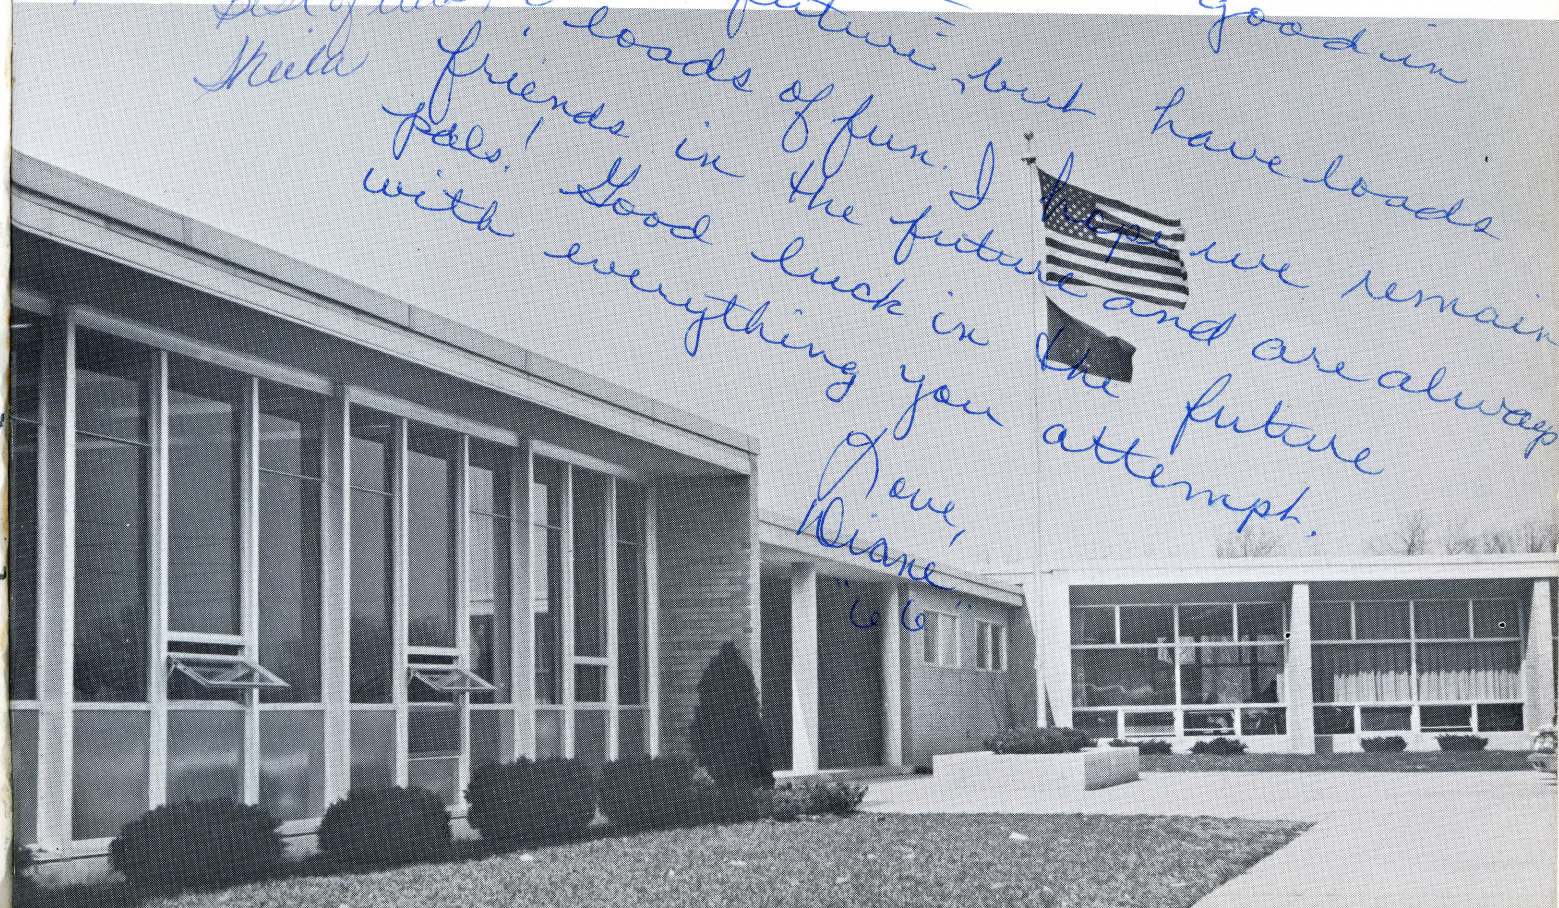 Best of luck,
Sheila
good in
future, but have loads
loads of fun. I hope we remain
friends in the future and are always
pals! Good luck in the future
with everything you attempt.
Love,
Diane
"66"